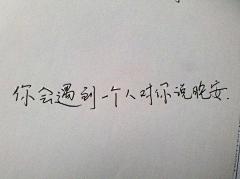 你会遇到一个人对你说晚安.